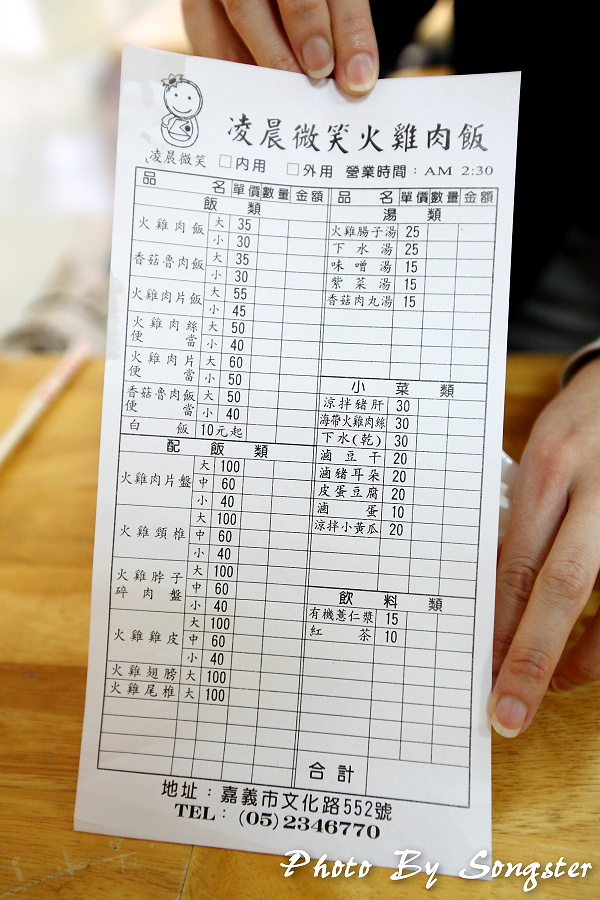 凌晨微笑火雞肉飯
凌晨微笑 □內用 □外用 營業時間：AM 2:30
品名 單價 數量 金額
飯類
火雞肉飯 大 35
小 30
香菇魯肉飯 大 35
小 30
火雞肉片飯 大 55
小 45
火雞肉絲便當 大 50
小 40
火雞肉片便當 大 60
小 50
香菇魯肉飯便當 大 50
小 40
白飯 10元起
配飯類
火雞肉片盤 大 100
中 60
小 40
火雞頸椎 大 100
中 60
小 40
火雞脖子碎肉盤 大 100
中 60
小 40
火雞雞皮 大 100
中 60
小 40
火雞翅膀 大 100
火雞尾椎 大 100
品名 單價 數量 金額
湯類
火雞腸子湯 25
下水湯 25
味噌湯 15
紫菜湯 15
香菇肉丸湯 15
小菜類
涼拌豬肝 30
海帶火雞肉絲 30
下水(乾) 30
滷豆干 20
滷豬耳朵 20
皮蛋豆腐 20
滷蛋 10
涼拌小黃瓜 20
飲料類
有機薏仁漿 15
紅茶 10
合計
地址：嘉義市文化路552號
TEL：(05)2346770
Photo By Songster